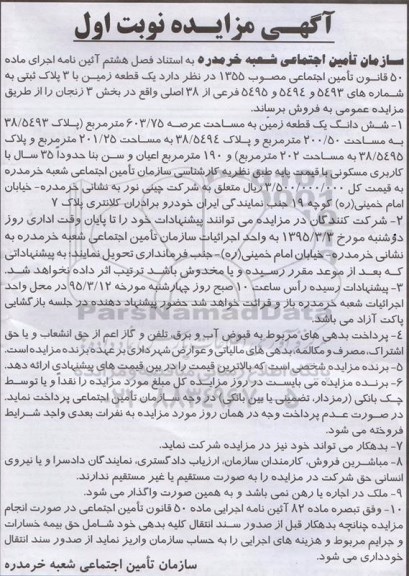 آگهـی مزایـده نوبـت اول
سـازمان تـأمین اجتمـاعی شـعبه خـرمدره به استناد فصل هشتم آئین نامه اجرای ماده
۵۰ قانـون تأمین اجتماعی مصوب ۱۳۵۵ در نظر دارد یک قطعه زمین با ۳ پلاک ثبتی به
شماره های ۵۴۹۳ و ۵۴۹۴ و ۵۴۹۵ فرعی از ۳۸ اصلی واقع در بخش ۳ زنجان را از طریق
مزایده عمومی به فروش برساند.
۱- شـش دانـگ یک قطعه زمین به مساحت عرصه ۶۰۳/۷۵ مترمربع (پلاک ۳۸/۵۴۹۳
بـه مسـاحت ۲۰۰/۵۰ مترمربـع و پـلاک ۳۸/۵۴۹۴ به مسـاحت ۲۰۱/۲۵ مترمربع و پلاک
۳۸/۵۴۹۵ به مساحت ۲۰۲ مترمربع) و ۱۹۰ مترمربع اعیان و سـن بنا حدوداً ۳۵ سال با
کاربری مسـکونی با قیمت پایه طبق نظریه کارشناسی سازمان تأمین اجتماعی شعبه خرمدره
به قیمت کل ۳/۵۰۰/۰۰۰/۰۰۰ ریال متعلق به شـرکت چینی نور به نشانی خرمدره- خیابان
امام خمینی(ره) کوچه ۱۹ جنب نمایندگی ایران خودرو برادران کلانتری پلاک ۷
۲- شـرکت کنندگان در مزایده می توانند پیشنهادات خود را تا پایان وقت اداری روز
دوشنبه مورخ ۱۳۹۵/۳/۱۰ به واحد اجرائیات سازمان تأمین اجتماعی شعبه خرمدره به
نشانی خرمدره- خیابان امام خمینی(ره)- جنب فرمانداری تحویل نمایند، به پیشنهاداتی
که بعد از موعد مقرر رسـیده و یا مخدوش باشـد ترتیب اثر داده نخواهد شـد.
۳- پیشنهادات رسیده رأس ساعت ۱۰ صبح روز چهارشنبه مورخه ۹۵/۳/۱۲ در محل واحد
اجرائیات شعبه خرمدره باز و قرائت خواهد شد حضور پیشنهاد دهنده در جلسه بازگشایی
پاکت آزاد می باشد.
۴- پرداخت بدهی های مربوط به قبوض آب و برق، تلفن و گاز اعم از حق انشعاب و یا حق
اشتراک، مصرف و مکالمه، بدهی های مالیاتی و عوارض شهرداری بر عهده برنده مزایده است.
۵- برنده مزایده شخصی است که بالاترین قیمت را در بین قیمت های پیشنهادی ارائه دهد.
۶- برنـده مزایده می بایسـت در روز مزایده کل مبلغ مورد مزایده را نقداً و یا توسـط
چـک بانکی (رمزدار، تضمینی یا بین بانکی) در وجه سـازمان تأمین اجتماعی پرداخت نماید.
در صورت عـدم پرداخت وجه در همان روز مورد مزایده به نفرات بعدی واجد شـرایط
فروخته می شود.
۷- بدهکار می تواند خود نیز در مزایده شرکت نماید.
۸- مباشـرین فروش، کارمندان سازمان، ارزیاب دادگستری، نمایندگان دادسرا و یا نیروی
انسانی حق شرکت در مزایده را به صورت مستقیم یا غیر مستقیم ندارند.
۹- ملک در اجاره یا رهن نمی باشد و به همین صورت واگذار می شود.
۱۰- وفـق تبصره ماده ۸۲ آئین نامه اجرایی ماده ۵۰ قانون تأمین اجتماعی در صورت انجام
مزایده چنانچه بدهکار قبل از صدور سند انتقال کلیه بدهی خود شامل حق بیمه خسارات
و جرایم مربوط و هزینه های اجرایی را به حساب سازمان واریز نماید از صدور سند انتقال
خودداری می شود.
سازمان تأمین اجتماعی شعبه خرمدره
ParsNamadData